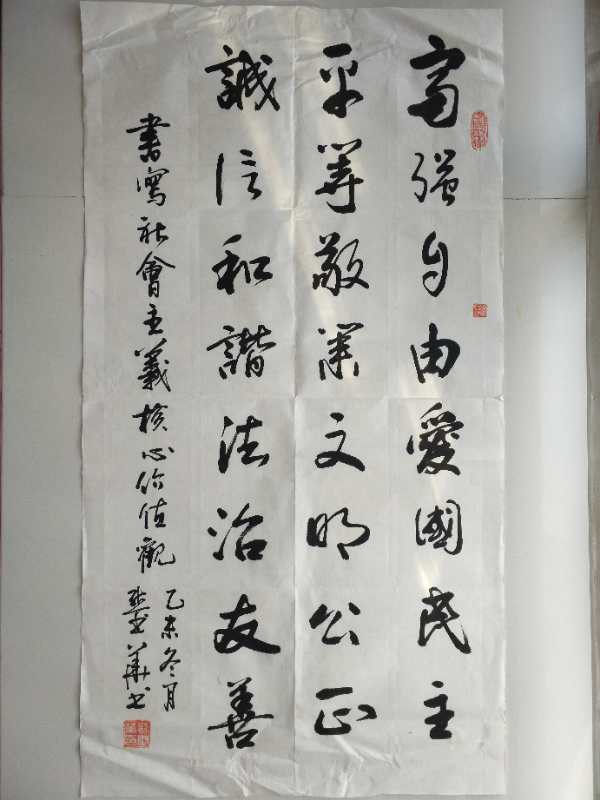 富強自由愛國民主
平等敬業文明公正
誠信和諧法治友善
書寫社會主義核心价值觀
乙未冬月
華书